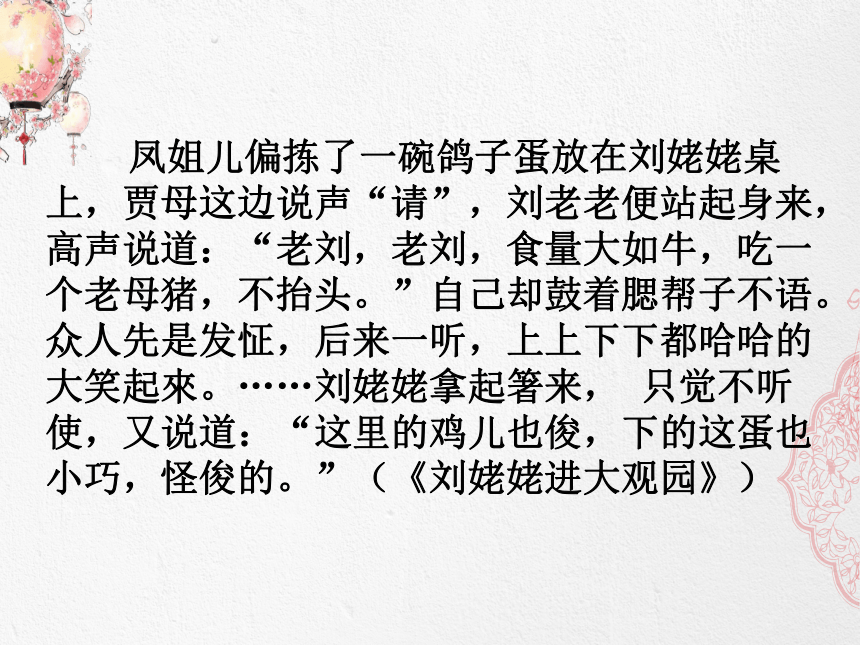 凤姐儿偏拣了一碗鸽子蛋放在刘姥姥桌
上，贾母这边说声“请”，刘老老便站起身来，
高声说道：“老刘，老刘，食量大如牛，吃一
个老母猪，不抬头。”自己却鼓着腮帮子不语。
众人先是发怔，后来一听，上上下下都哈哈的
大笑起來。……刘姥姥拿起箸来， 只觉不听
使，又说道：“这里的鸡儿也俊，下的这蛋也
小巧，怪俊的。”（《刘姥姥进大观园》）